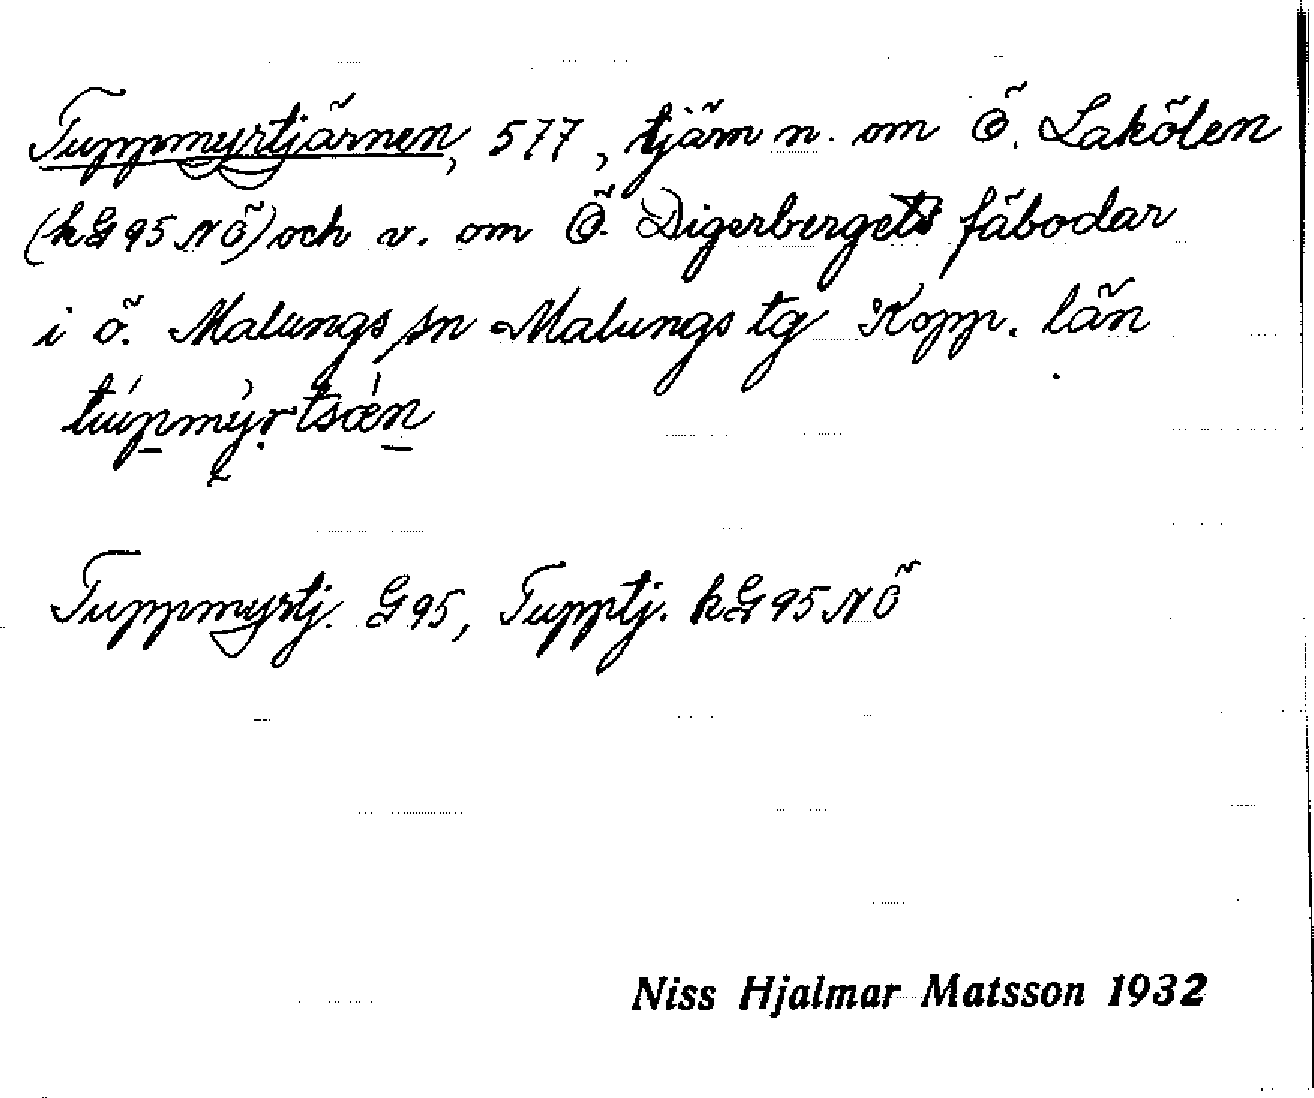 Tuppmyrtjärnen, 577, tjärn n. om Ö. Lakölen
(kG95NÖ) och v. om Ö. Digerbergets fäbodar
i ö. Malungs sn Malungs tg Kopp. län
túpmỳrtsǽn
Tuppmyrtj. G95, Tupptj. kG95NÖ
Niss Hjalmar Matsson 1932